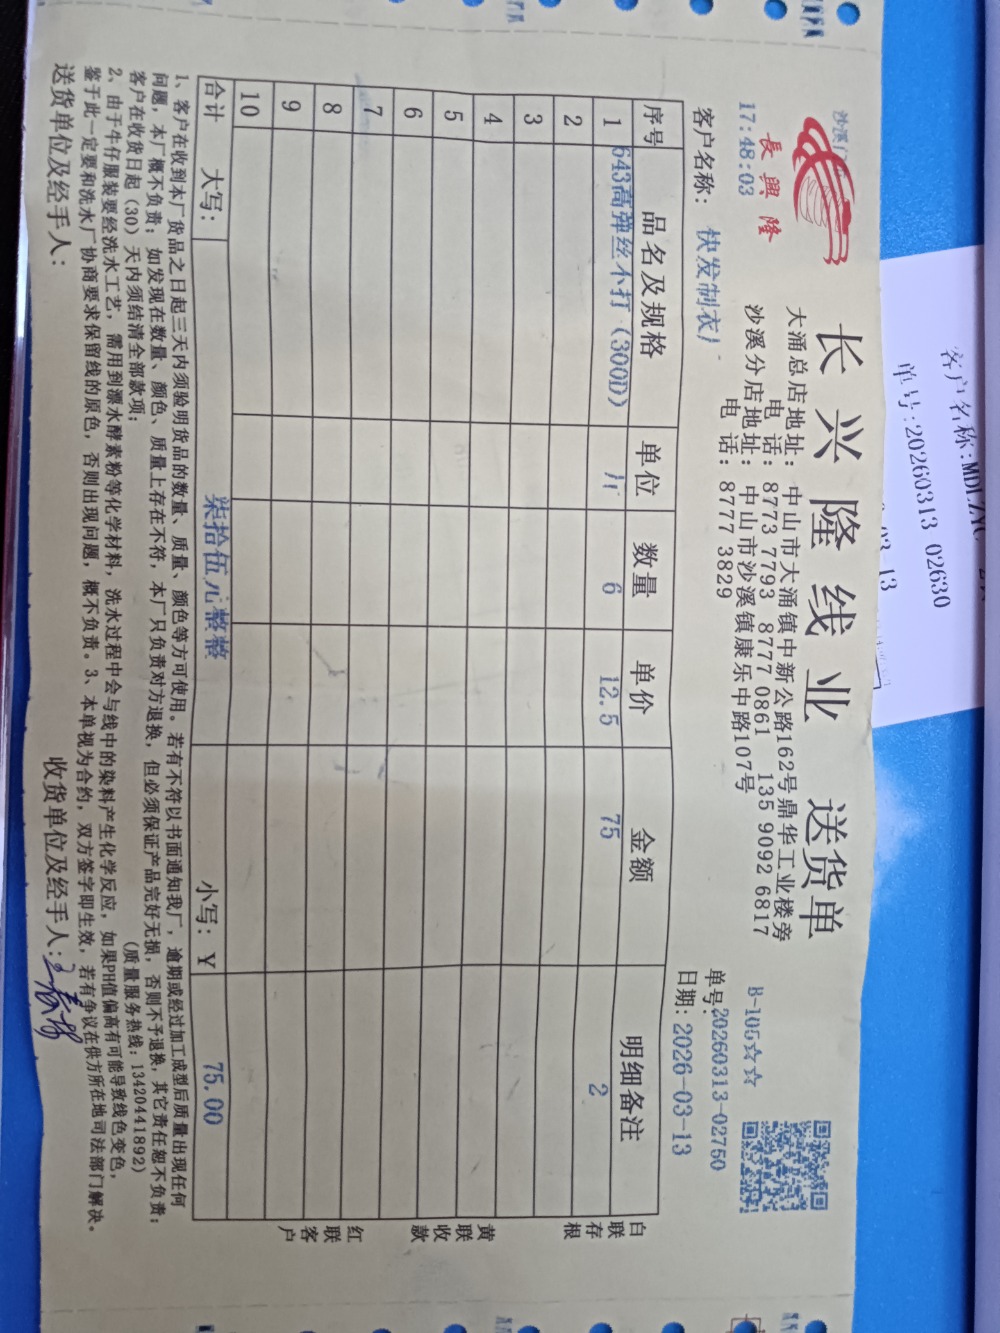 长兴隆线业 送货单
長興隆
17:48:03
大涌总店地址：中山市大涌镇中新公路162号鼎华工业楼旁
电 话：8773 7793 8777 0861 135 9092 6817
沙溪分店地址：中山市沙溪镇康乐中路107号
电 话：8777 3829
B-105☆☆
单号:20260313-02750
客户名称：快发制衣厂
日期：2026-03-13
序号 品名及规格 单位 数量 单价 金额 明细备注
1 643高弹丝不打（300D） 6 12.5 75 2
2
3
4
5
6
7
8
9
10
合计 大写：柒拾伍元整整 小写：￥ 75.00
白联存根
黄联收款
红联客户
1、客户在收到本厂货品之日起三天内须验明货品的数量、质量、颜色等方可使用。若有不符以书面通知我厂，逾期或经过加工成型后质量出现任何
问题，本厂概不负责；如发现在数量、颜色、质量上存在不符，本厂只负责对方退换，但必须保证产品完好无损，否则不予退换，其它责任恕不负责；
客户在收货日起（30）天内须结清全部款项； （质量服务热线：13420441892）
2、由于牛仔服装要经洗水工艺，需用到漂水酵素粉等化学材料，洗水过程中会与线中的染料产生化学反应，如果PH值偏高有可能导致线色变色，
鉴于此一定要和洗水厂协商要求保留线的原色，否则出现问题，概不负责。3、本单视为合约，双方签字即生效，若有争议在供方所在地司法部门解决。
送货单位及经手人： 收货单位及经手人：
客户名称:MDLZYC
单号:20260313 02630